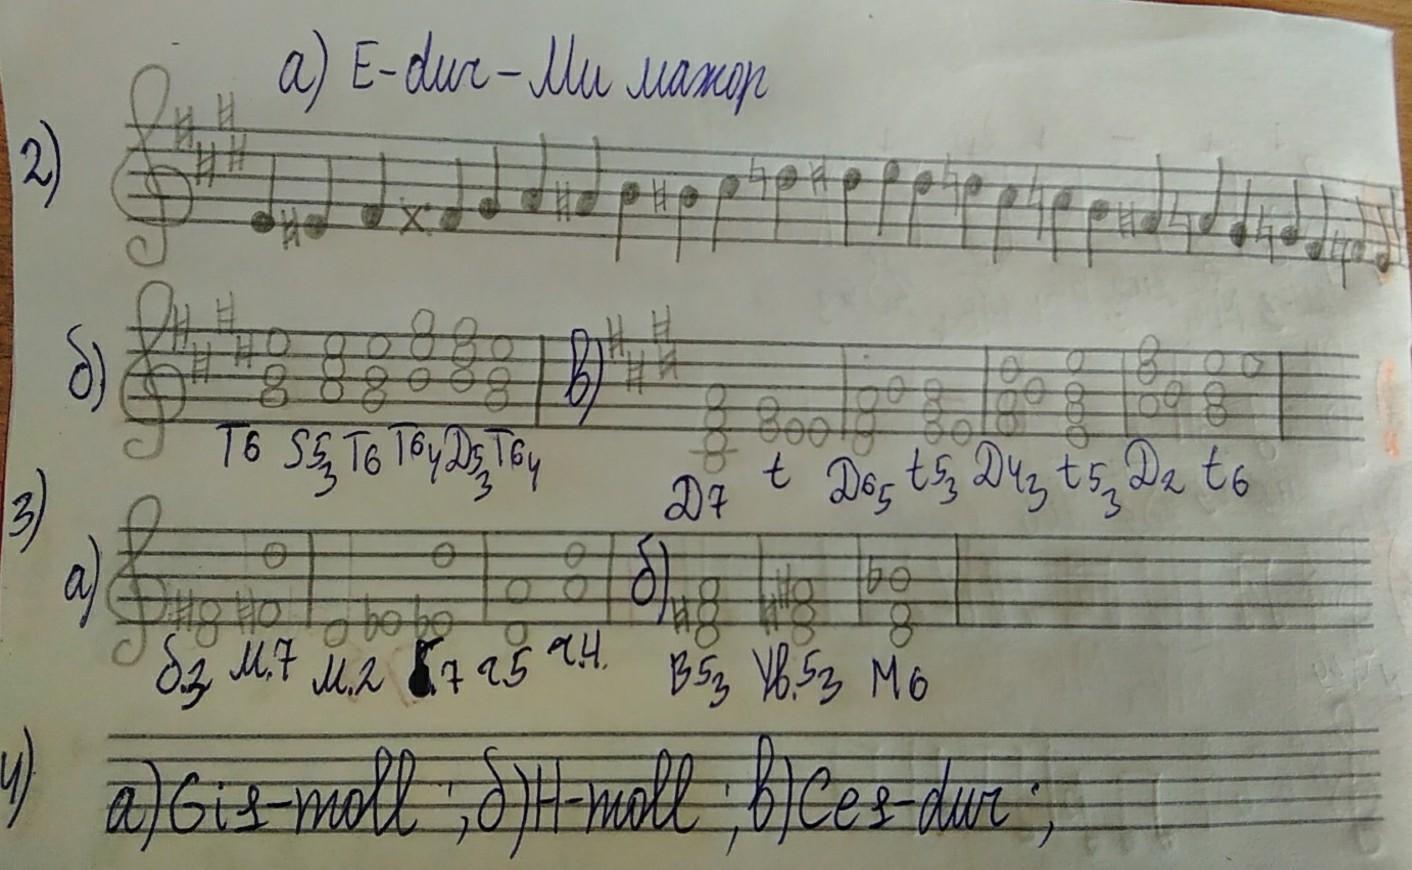 а) E-dur - Ми мажор
2)
б) T6 S53 T6 T64 D53 T64 в) D7 t D65 t53 D43 t53 D2 t6
3)
а) б.3 м.7 м.2 .7 ч5 ч.4. б) Б53 Ув.53 М6
4) а) Gis-moll ; б) H-moll ; в) Ces-dur ;